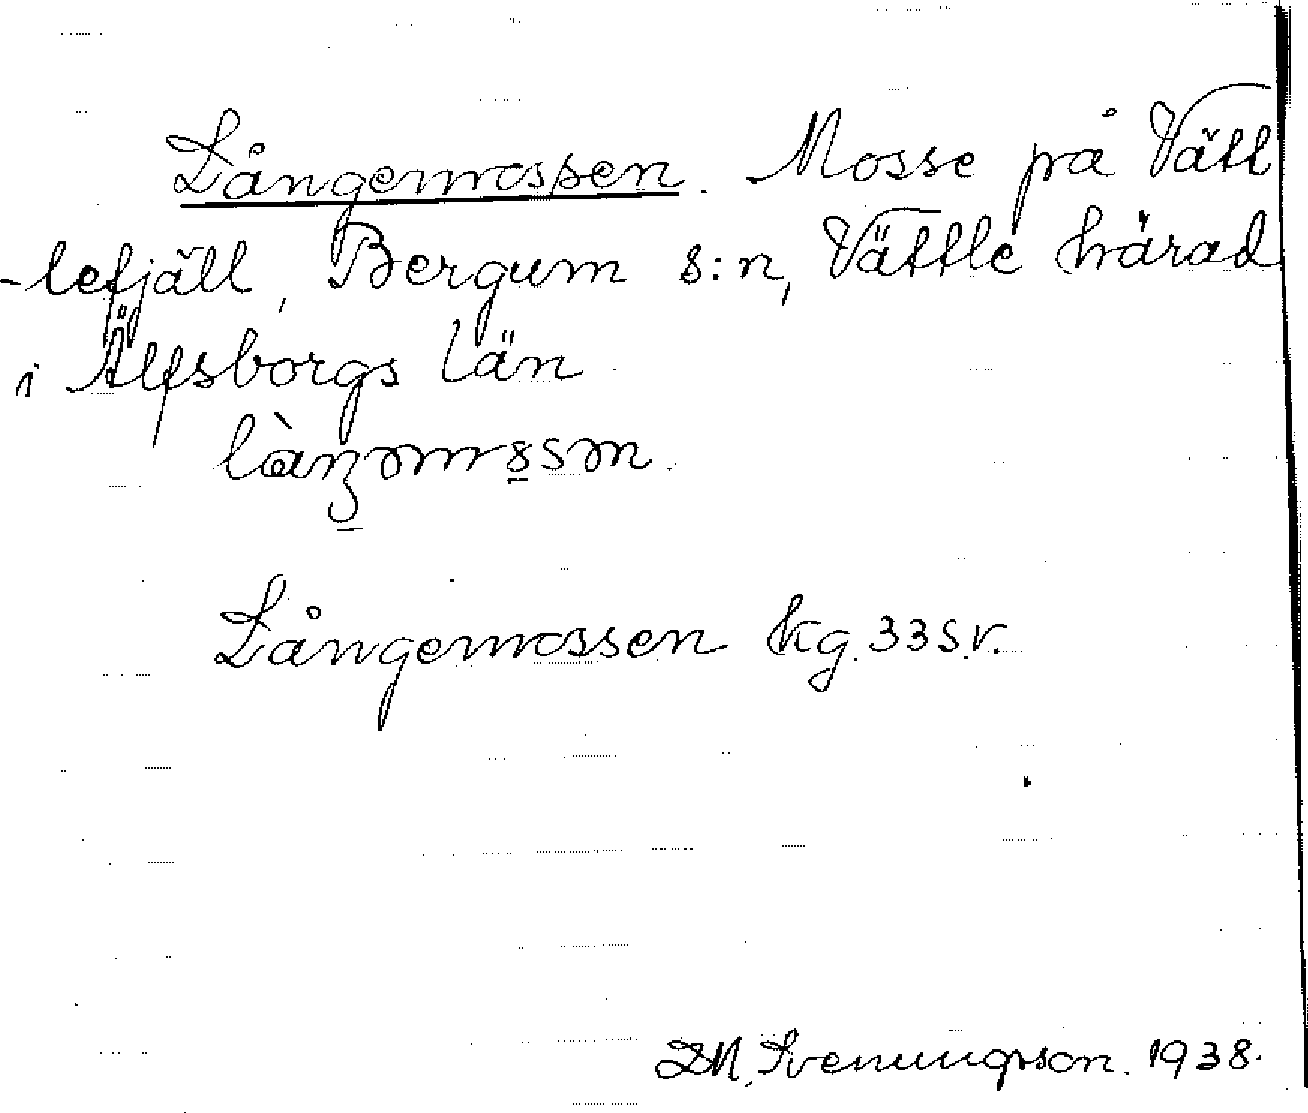 Långemossen. Mosse på Vätt
-lefjäll, Bergum s:n, Vättle härad
i Älfsborgs län
Långemossen kg. 33 s.v.
D.M. Svenungsson. 1938.